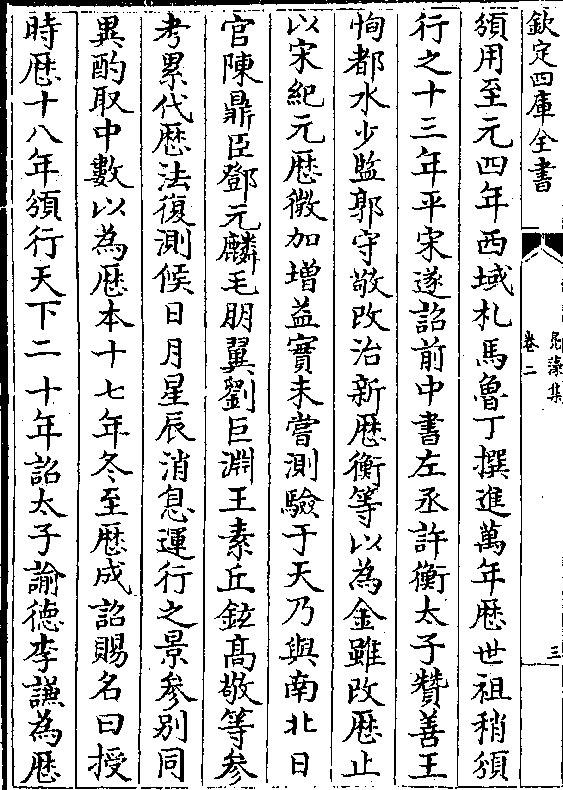 欽定四庫全書
卷二
三
頒用至元四年西域札馬魯丁撰進萬年厯世祖稍頒
行之十三年平宋遂詔前中書左丞許衡太子贊善王
恂都水少監郭守敬改治新厯衡等以為金雖改厯止
以宋紀元厯微加增益實未嘗測驗于天乃與南北日
官陳鼎臣鄧元麟毛朋翼劉巨淵王素丘鉉高敬等參
考累代厯法復測候日月星辰消息運行之景參别同
異酌取中數以為厯本十七年冬至厯成詔賜名曰授
時厯十八年頒行天下二十年詔太子諭德李謙為厯